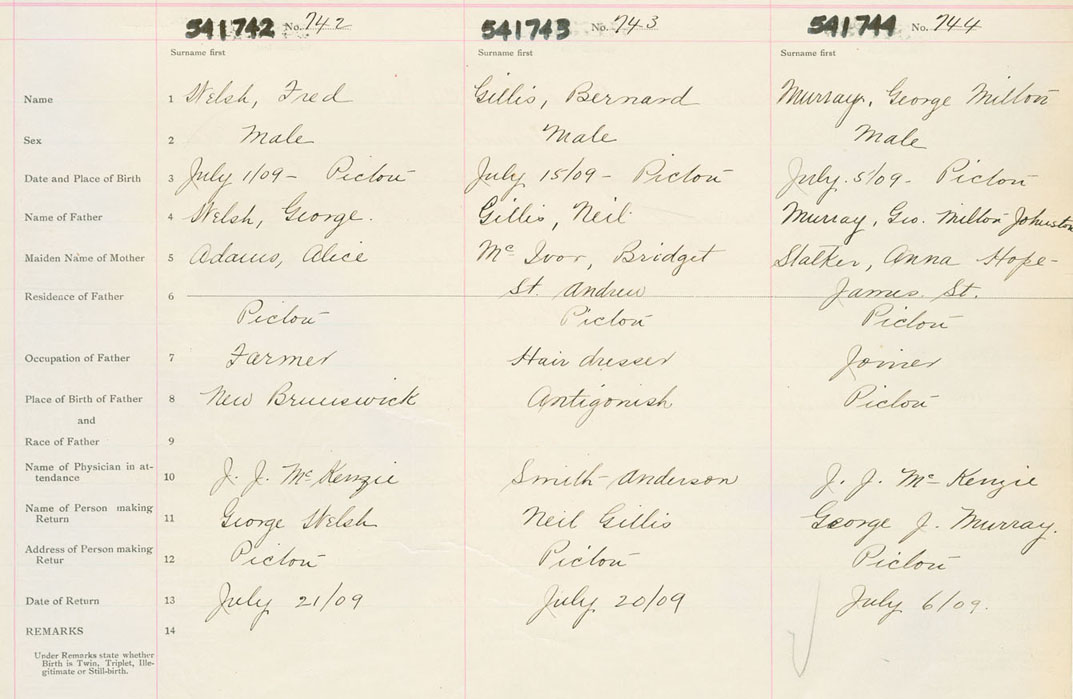 541742 No. 742 541743 No. 743 541744 No. 744
Surname first Surname first Surname first
Name 1 Welsh, Fred Gillis, Bernard Murray, George Milton
Sex 2 Male Male Male
Date and Place of Birth 3 July 1/09 - Pictou July 15/09 - Pictou July. 5/09 - Pictou
Name of Father 4 Welsh, George. Gillis, Neil Murray, Geo. Milton Johnston
Maiden Name of Mother 5 Adams, Alice Mc Ivor, Bridget Stalker, Anna Hope -
St. Andrew James St.
Residence of Father 6
Pictou Pictou Pictou
Occupation of Father 7 Farmer Hair dresser Joiner
Place of Birth of Father 8 New Brunswick Antigonish Pictou
and
Race of Father 9
Name of Physician in at-
tendance 10 J. J. McKenzie Smith-Anderson J. J. McKenzie
Name of Person making
Return 11 George Welsh Neil Gillis George J. Murray.
Address of Person making
Retur 12 Pictou Pictou Pictou
Date of Return 13 July 21/09 July 20/09 July 6/09.
REMARKS 14
Under Remarks state whether
Birth is Twin, Triplet, Ille-
gitimate or Still-birth.